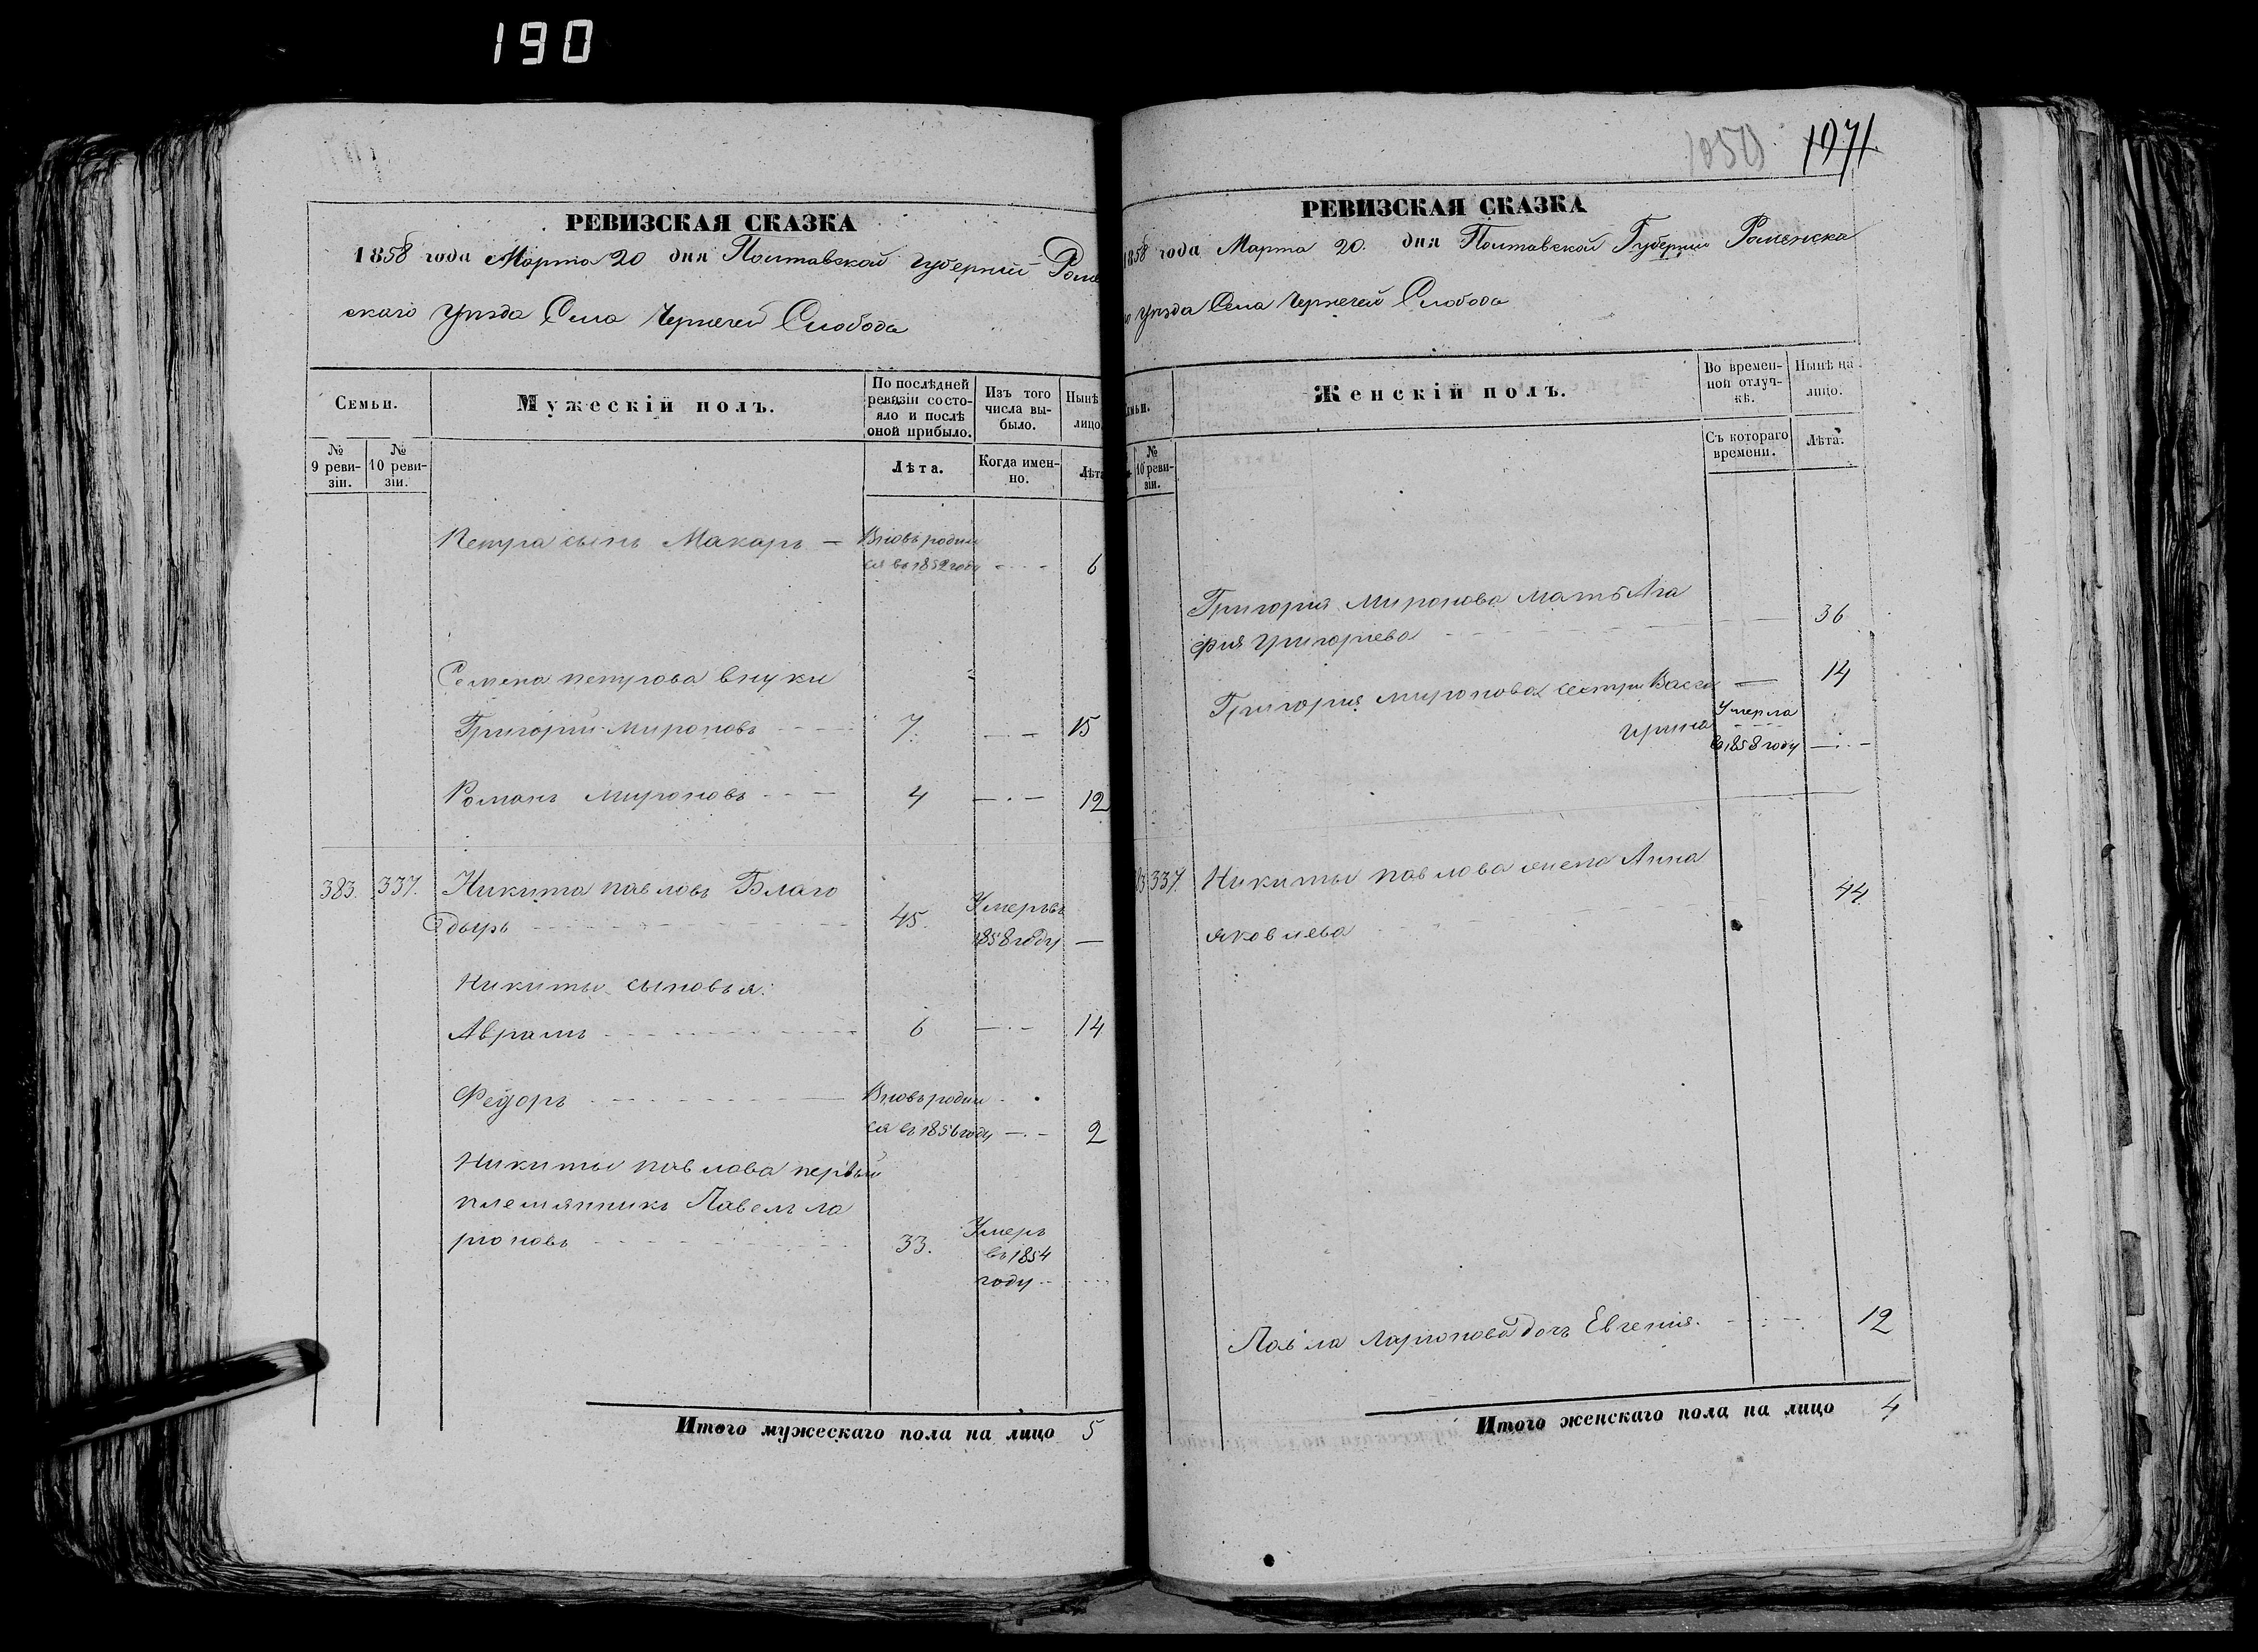 190
РЕВИЗСКАЯ СКАЗКА
1858 года Марта 20 дня Полтавской губернии Роме
скаго уѣзда Села Чернечей Слобода
Семьи.
Мужескій полъ.
По послѣдней ревизіи состо-
яло и послѣ
оной прибыло.
Изъ того
числа вы-
было.
Нынѣ
лицо
№
9 реви-
зіи.
№
10 реви-
зіи.
Лѣта.
Когда имен-
но.
Лѣта
Петра сынъ Макаръ — Вновь родил
ся въ 1852 году 6
Семена петрова внуки
Григорий Мироновъ 7. 15
Романъ Мироновъ 4 12
383. 337. Никита павловъ Благо
дыръ 45. Умеръ въ
1858 году —
Никиты сыновья:
Аврамъ 6 14
Федоръ Вновь родил
ся въ 1856 году 2
Никиты павлова первый
племянникъ Павелъ ла
ріоновъ 33. Умеръ
въ 1854
году
Итого мужескаго пола на лицо 5
1050 1071.
РЕВИЗСКАЯ СКАЗКА
1858 года Марта 20. дня Полтавской Губернии Роменска
уѣзда Села Чернечей Слобода
Женскій полъ.
Во времен-
ной отлуч-
кѣ.
Нынѣ на
лицо.
№
10 реви-
зіи.
Съ котораго
времени.
Лѣта.
Григория Миронова мать Ага
фия григориева 36
Григория миронова сестры Васса — 14
ирина Умерла
в 1858 году
337. Никиты павлова жена Анна
яковлева 44.
Павла Ларионова дочь Евгения. 12
Итого женскаго пола на лицо 4